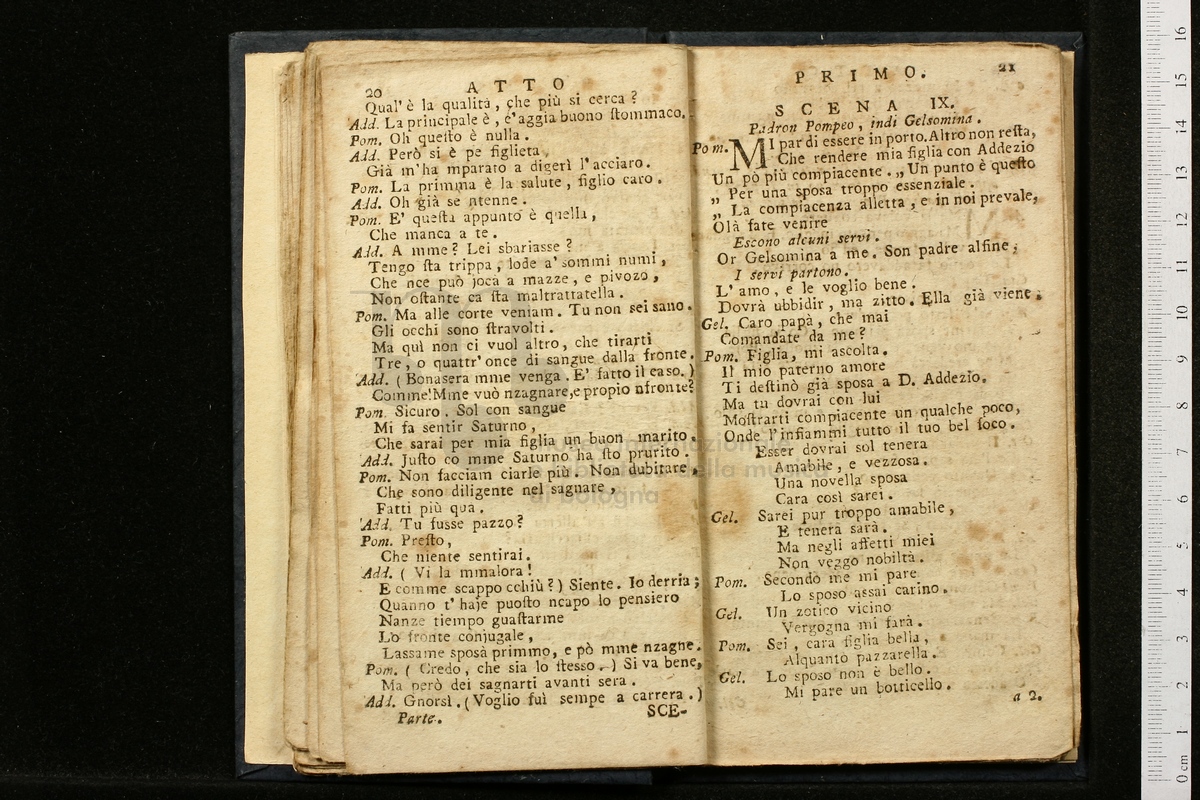 20 ATTO
Qual' è la qualità, che più si cerca?
Add. La principale è, c'aggia buono ſtommaco.
Pom. Oh queſto è nulla.
Add. Però si è pe figlieta
Già m'ha mparato a digerì l'acciaro.
Pom. La primma è la salute, figlio caro.
Add. Oh già se ntenne.
Pom. E' queſta appunto è quella,
Che manca a te.
Add. A mme? Lei sbariasse?
Tengo ſta trippa, lode a' sommi numi,
Che nce può joca a mazze, e pivozo,
Non oſtante ca ſta maltrattatella.
Pom. Ma alle corte veniam. Tu non sei sano.
Gli occhi sono ſtravolti.
Ma quì non ci vuol altro, che tirarti
Tre, o quattr' once di sangue dalla fronte.
Add. (Bonasera mme venga. E' fatto il caso.)
Comme! Mme vuò nzagnare, e propio nfronte?
Pom. Sicuro. Sol con sangue
Mi fa sentir Saturno,
Che sarai per mia figlia un buon marito.
Add. Juſto co mme Saturno ha ſto prurito.
Pom. Non facciam ciarle più. Non dubitare,
Che sono diligente nel sagnare,
Fatti più qua.
Add. Tu fusse pazzo?
Pom. Preſto,
Che niente sentirai.
Add. (Vi la mmalora!
E comme scappo cchiù?) Siente. Io derria;
Quanno t' haje puoſto ncapo lo pensiero
Nanze tiempo guaſtarme
Lo fronte conjugale,
Lassame sposà primmo, e pò mme nzagne.
Pom. (Credo, che sia lo ſtesso.) Si va bene,
Ma però dei sagnarti avanti sera.
Add. Gnorsì. (Voglio fuì sempe a carrera.)
Parte. SCE-
PRIMO. 21
SCENA IX.
Padron Pompeo, indi Gelsomina.
Pom. MI par di essere in porto. Altro non reſta,
Che rendere mia figlia con Addezio
Un pò più compiacente. „ Un punto è queſto
„ Per una sposa troppo essenziale.
„ La compiacenza alletta, e in noi prevale,
Olà fate venire
Escono alcuni servi.
Or Gelsomina a me. Son padre alfine;
I servi partono.
L' amo, e le voglio bene.
Dovrà ubbidir, ma zitto. Ella già viene.
Gel. Caro papà, che mai
Comandate da me?
Pom. Figlia, mi ascolta.
Il mio paterno amore
Ti deſtinò già sposa a D. Addezio.
Ma tu dovrai con lui
Moſtrarti compiacente un qualche poco,
Onde l'infiammi tutto il tuo bel foco.
Esser dovrai sol tenera
Amabile, e vezzosa.
Una novella sposa
Cara così sarei.
Gel. Sarei pur troppo amabile,
E tenera sarà.
Ma negli affetti miei
Non veggo nobiltà.
Pom. Secondo me mi pare
Lo sposo assai carino.
Gel. Un zotico vicino
Vergogna mi farà.
Pom. Sei, cara figlia bella,
Alquanto pazzarella.
Gel. Lo sposo non è bello.
Mi pare un botticello.
a 2.